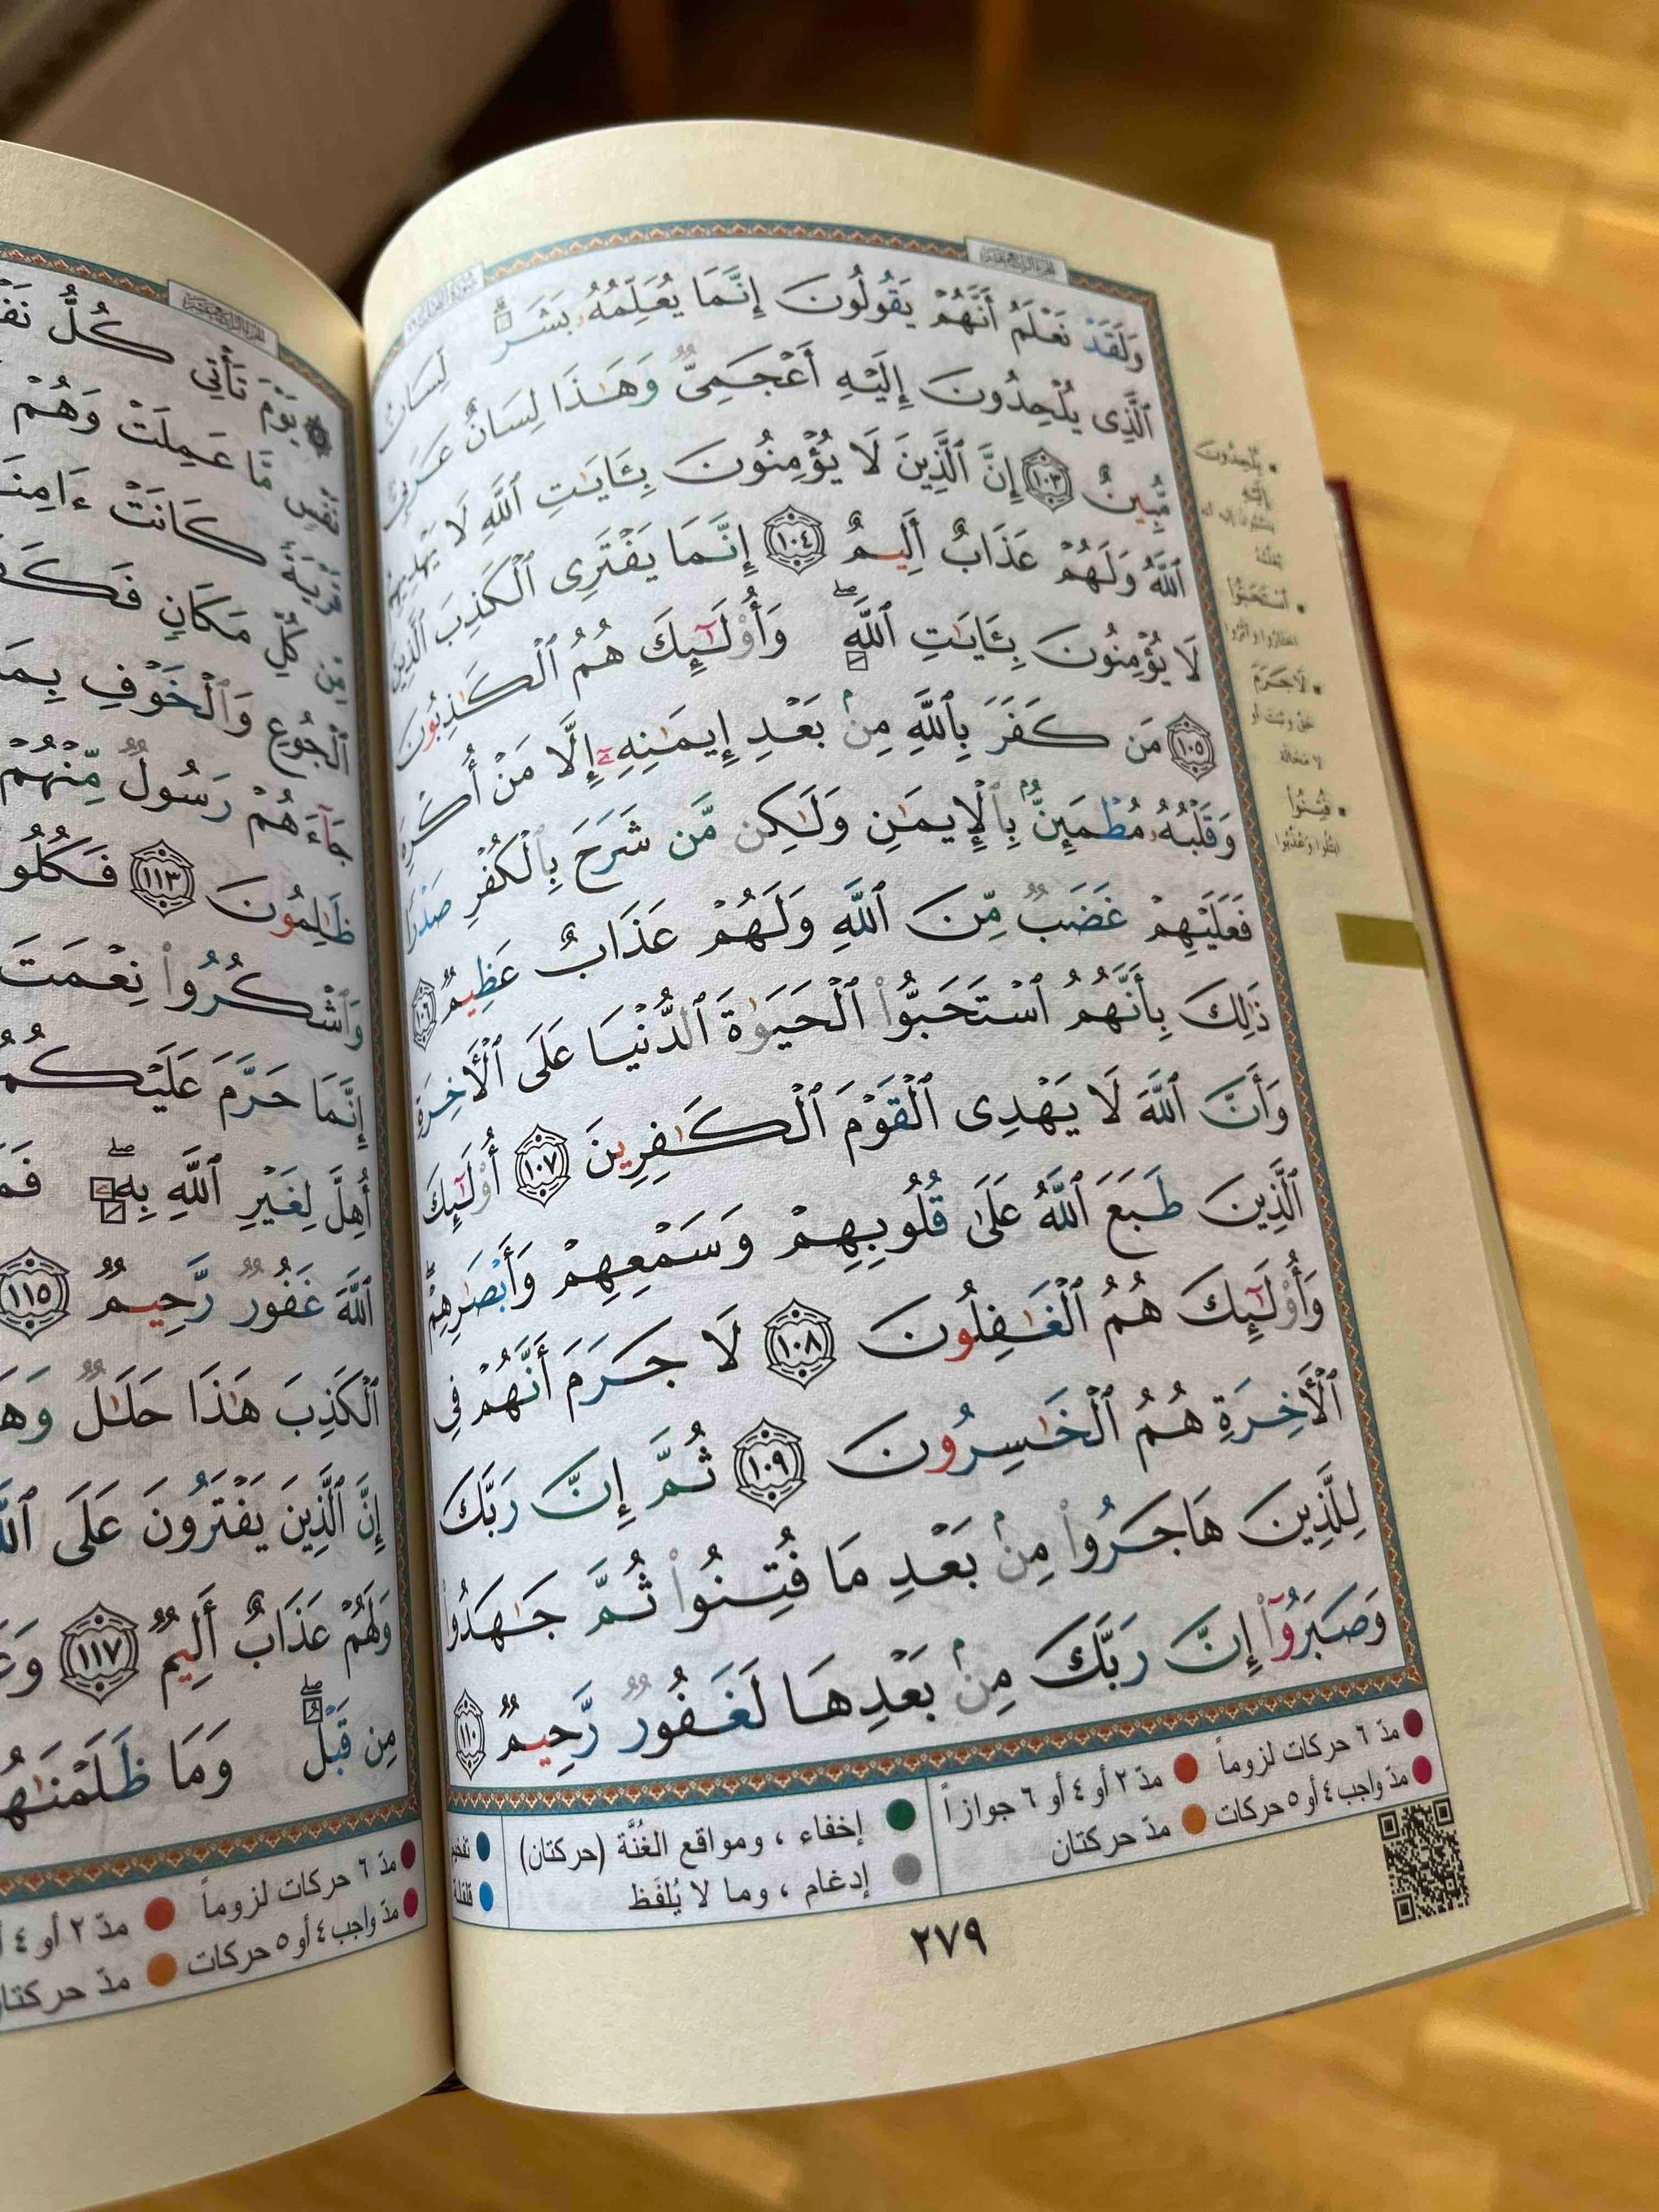 وَلَقَدْ نَعْلَمُ أَنَّهُمْ يَقُولُونَ إِنَّمَا يُعَلِّمُهُۥ بَشَرٌۗ لِّسَانُ
ٱلَّذِى يُلْحِدُونَ إِلَيْهِ أَعْجَمِىٌّ وَهَـٰذَا لِسَانٌ عَرَبِىٌّ
مُّبِينٌ ١٠٣ إِنَّ ٱلَّذِينَ لَا يُؤْمِنُونَ بِـَٔايَـٰتِ ٱللَّهِ لَا يَهْدِيهِمُ
ٱللَّهُ وَلَهُمْ عَذَابٌ أَلِيمٌ ١٠٤ إِنَّمَا يَفْتَرِى ٱلْكَذِبَ ٱلَّذِينَ
لَا يُؤْمِنُونَ بِـَٔايَـٰتِ ٱللَّهِۖ وَأُو۟لَـٰٓئِكَ هُمُ ٱلْكَـٰذِبُونَ
١٠٥ مَن كَفَرَ بِٱللَّهِ مِنۢ بَعْدِ إِيمَـٰنِهِۦٓ إِلَّا مَنْ أُكْرِهَ
وَقَلْبُهُۥ مُطْمَئِنٌّۢ بِٱلْإِيمَـٰنِ وَلَـٰكِن مَّن شَرَحَ بِٱلْكُفْرِ صَدْرًا
فَعَلَيْهِمْ غَضَبٌ مِّنَ ٱللَّهِ وَلَهُمْ عَذَابٌ عَظِيمٌ ١٠٦
ذَٰلِكَ بِأَنَّهُمُ ٱسْتَحَبُّوا۟ ٱلْحَيَوٰةَ ٱلدُّنْيَا عَلَى ٱلْـَٔاخِرَةِ
وَأَنَّ ٱللَّهَ لَا يَهْدِى ٱلْقَوْمَ ٱلْكَـٰفِرِينَ ١٠٧ أُو۟لَـٰٓئِكَ
ٱلَّذِينَ طَبَعَ ٱللَّهُ عَلَىٰ قُلُوبِهِمْ وَسَمْعِهِمْ وَأَبْصَـٰرِهِمْۖ
وَأُو۟لَـٰٓئِكَ هُمُ ٱلْغَـٰفِلُونَ ١٠٨ لَا جَرَمَ أَنَّهُمْ فِى
ٱلْـَٔاخِرَةِ هُمُ ٱلْخَـٰسِرُونَ ١٠٩ ثُمَّ إِنَّ رَبَّكَ
لِلَّذِينَ هَاجَرُوا۟ مِنۢ بَعْدِ مَا فُتِنُوا۟ ثُمَّ جَـٰهَدُوا۟
وَصَبَرُوٓا۟ إِنَّ رَبَّكَ مِنۢ بَعْدِهَا لَغَفُورٌ رَّحِيمٌ ١١٠
يُلْحِدُونَ
إِلَيْهِ
ٱسْتَحَبُّوا۟
لَا جَرَمَ
لا مَحَالَة
فُتِنُوا۟
ابْتُلُوا وَعُذِّبُوا
مدّ ٦ حركات لزوماً مدّ ٢ أو ٤ أو ٦ جوازاً
مدّ واجب ٤ أو ٥ حركات مدّ حركتان
إخفاء ، ومواقع الغُنَّة (حركتان)
إدغام ، وما لا يُلفَظ
تفخيم
قلقلة
٢٧٩
يَوْمَ تَأْتِى كُلُّ
نَفْسٍ مَّا عَمِلَتْ وَهُمْ
قَرْيَةً كَانَتْ ءَامِنَ
مِّن كُلِّ مَكَانٍ فَكَفَ
ٱلْجُوعِ وَٱلْخَوْفِ بِمَا
جَآءَهُمْ رَسُولٌ مِّنْهُمْ
ظَـٰلِمُونَ ١١٣ فَكُلُوا
وَٱشْكُرُوا۟ نِعْمَتَ
إِنَّمَا حَرَّمَ عَلَيْكُمُ
أُهِلَّ لِغَيْرِ ٱللَّهِ بِهِۦۖ فَمَ
ٱللَّهَ غَفُورٌ رَّحِيمٌ ١١٥
ٱلْكَذِبَ هَـٰذَا حَلَـٰلٌ وَهَـ
إِنَّ ٱلَّذِينَ يَفْتَرُونَ عَلَى ٱللَّ
وَلَهُمْ عَذَابٌ أَلِيمٌ ١١٧ وَعَ
مِن قَبْلُۖ وَمَا ظَلَمْنَـٰهُ
مدّ ٦ حركات لزوماً مدّ ٢ أو ٤ أ
مدّ واجب ٤ أو ٥ حركات مدّ حركتا